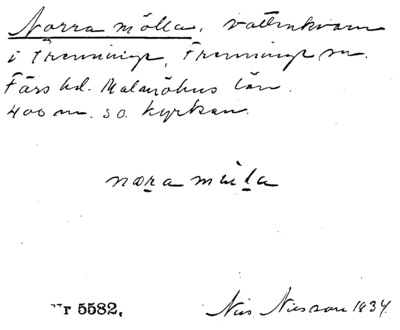 Norra mölla, vattenkvarn
i Tranninge, Tranninge sn.
Färs hd. Malmöhus län.
400 m. so. kyrkan.
nœra mœ̨la
Nr 5582.
Nils Nilsson 1934.